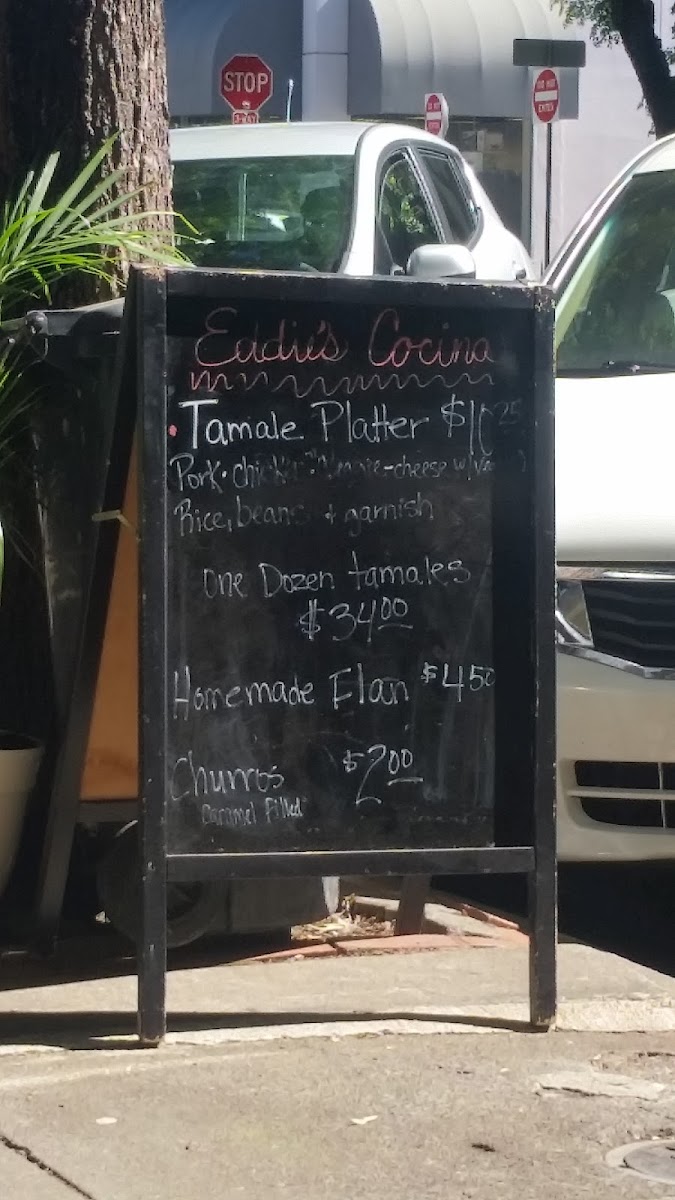 STOP
3-WAY
DO NOT
ENTER
Eddie's Cocina
Tamale Platter $10.25
Pork • chicken cheese w/
Rice, beans + garnish
One Dozen tamales
$34.00
Homemade Flan $4.50
Churro's $2.00
Caramel Filled